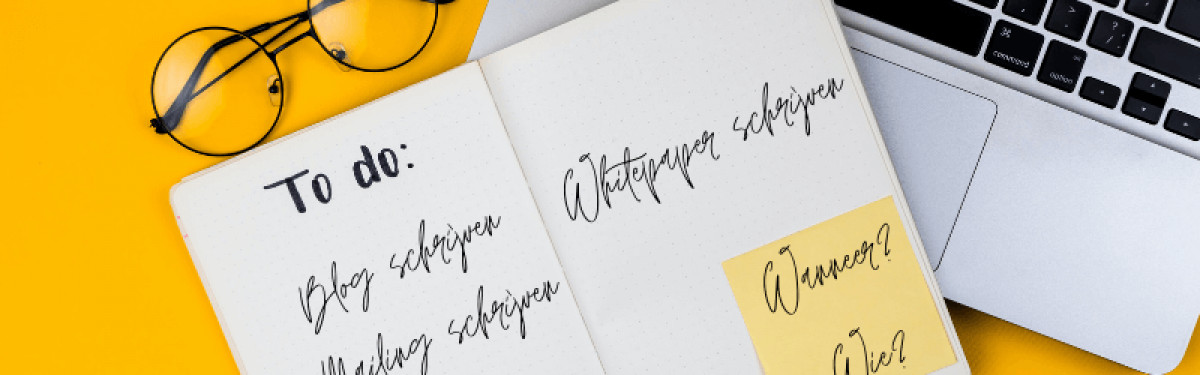 To do:
Blog schrijven
Mailing schrijven
Whitepaper schrijven
Wanneer?
Wie?
command
option